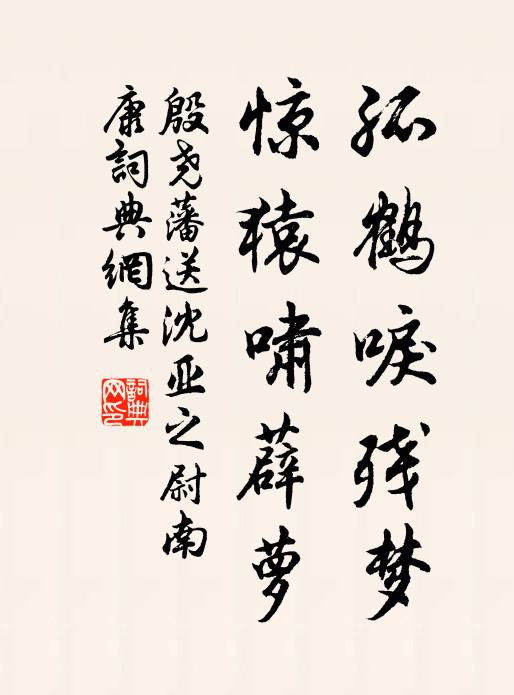 孤鹤唳残梦
惊猿啸薜萝
殷尧藩送沈亚之尉南
康詞典網集
詞典
网印